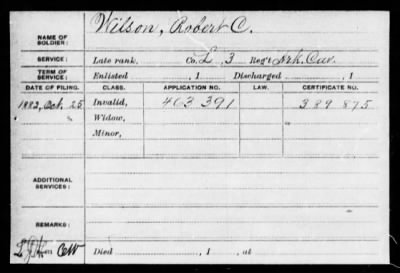 NAME OF SOLDIER: Wilson, Robert C.
SERVICE: Late rank, Co. L, 3 Reg't Ark. Cav.
TERM OF SERVICE: Enlisted , 1 Discharged , 1
DATE OF FILING. CLASS. APPLICATION NO. LAW. CERTIFICATE NO.
1882, Oct. 25 Invalid, 463 391 389 875
Widow,
Minor,
ADDITIONAL SERVICES:
REMARKS:
Died , 1 , at